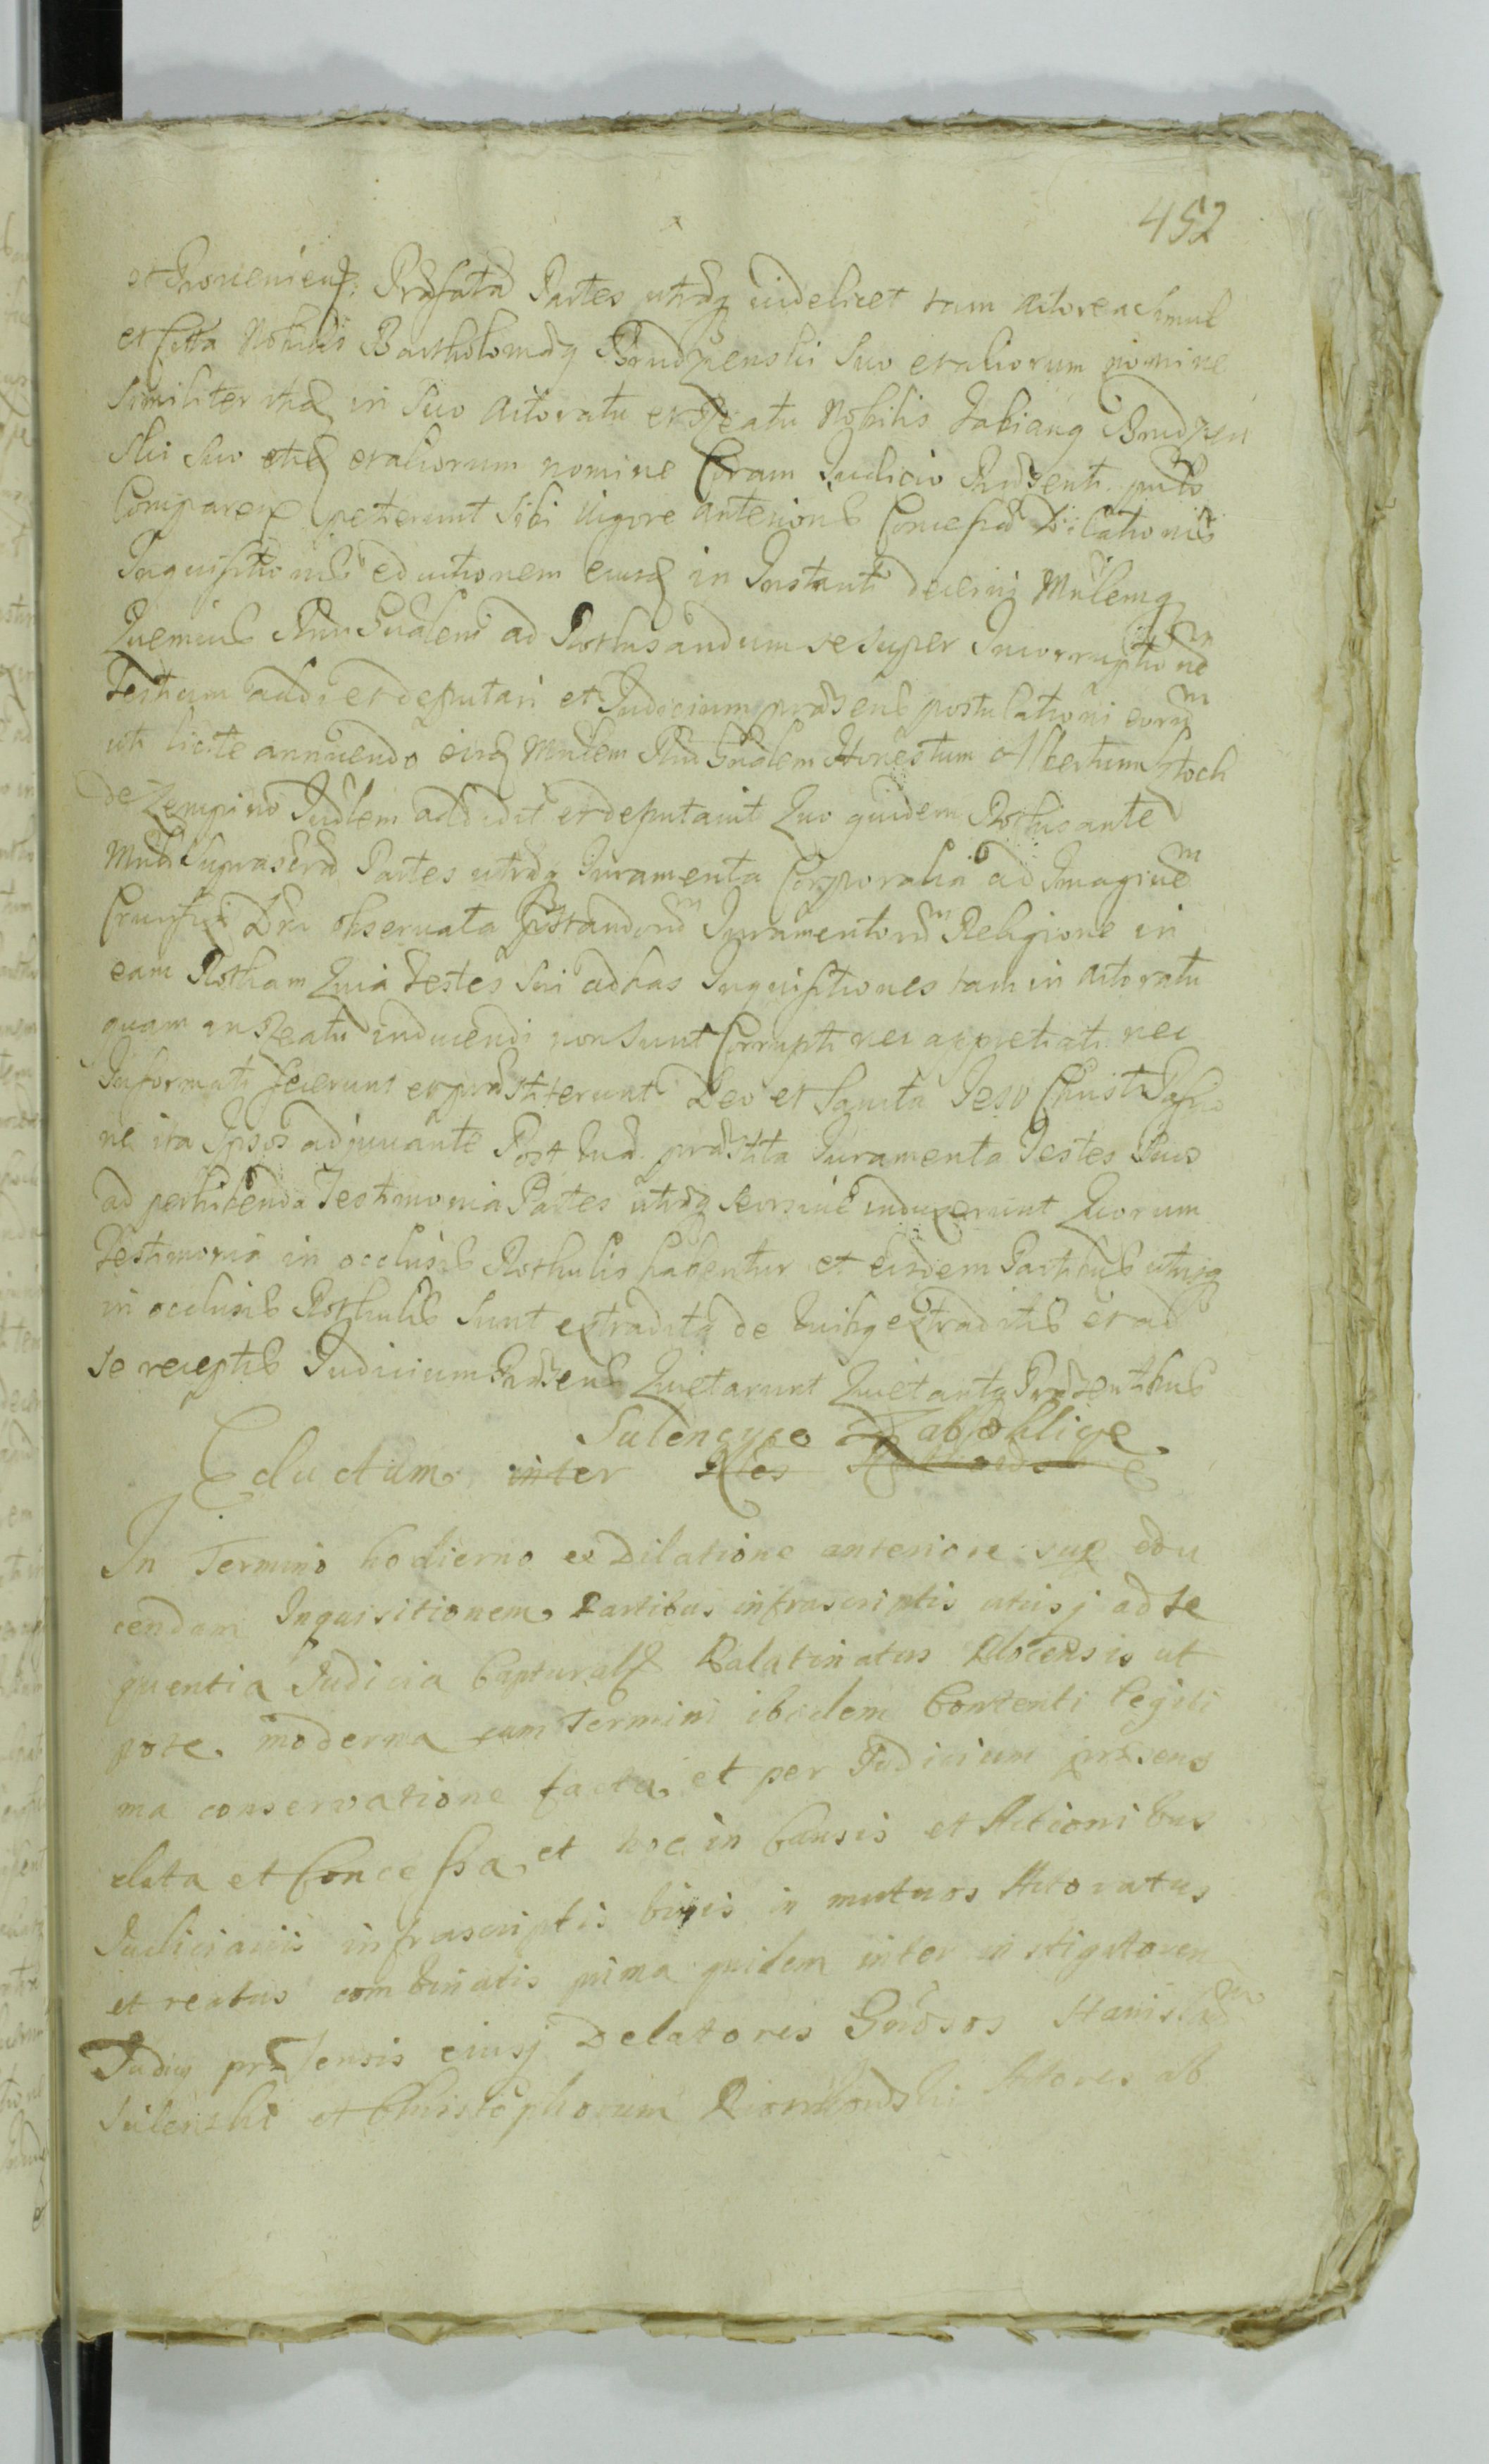 452
et Provenien. Praefatae Partes utraeq videlicet tam Actorea simul
et Citta Nobilis Bartholomaeq Brudzenski suo et aliorum nomine
similiter itid in suo Actoratu et Reatu Nobilis Fabianq Brudzen
ski suo etid et aliorum nomine Coram Judicio Praesenti psto
Comparen petierunt sibi vigore anterioris Concessae Dilationis
Inquisitionis eductionem eiusd in Instanti decerni
ad Rothisandum se super Incorruptione
Testium addi et deputari et Judicium praesens postulationi eorum
uti licite annuendo eisd Honestum Albertum
de Judlem addidit et deputavit Quo quidem Rothisante
suprascrae Partes utraeq Juramenta Corporalia ad Imaginem
Crucifixi Dni observata Juramentorum Religione in
eam Rotham Quia Testes sui ad has Inquisitiones tam in Actoratu
quam in Reatu inducendi non sunt Corrupti nec appretiati nec
Informati fecerunt et praestiterunt Deo et Sancta Jesu Christi Passio
ne ita Ipsos adjuvante Post praestita Juramenta Testes suos
ad perhibenda Testimonia Partes utraeq seorsive induxerunt Quorum
Testimonia in occlusis Rothulis habentur et eisdem Partibus utrisq
in occlusis Rothulis sunt extradita de quibq extraditis et ad
se receptis Judicium Praesens Quietarunt Quietantq Praesentibus
Sulencyce Zabokligie
Eductum inter
In Termino hodierno ex Dilatione anteriore sup edu
cendam Inquisitionem Partibus infrascriptis utrisq ad se
quentia Judicia Capturalia Palatinatus Plocensis ut
pote moderna cum Termini ibidem Contenti legiti
ma conservatione facta et per Judicium praesens
data et Concessa et hoc in Causis et Actionibus
Judiciariis infrascriptis binis in mutuos Actoratus
et reatus combinatis prima quidem inter instigatorem
Judicy praesensis eiusq Delatores Gnosos Stanislaum
Sulenski et Christophorum Actores ab